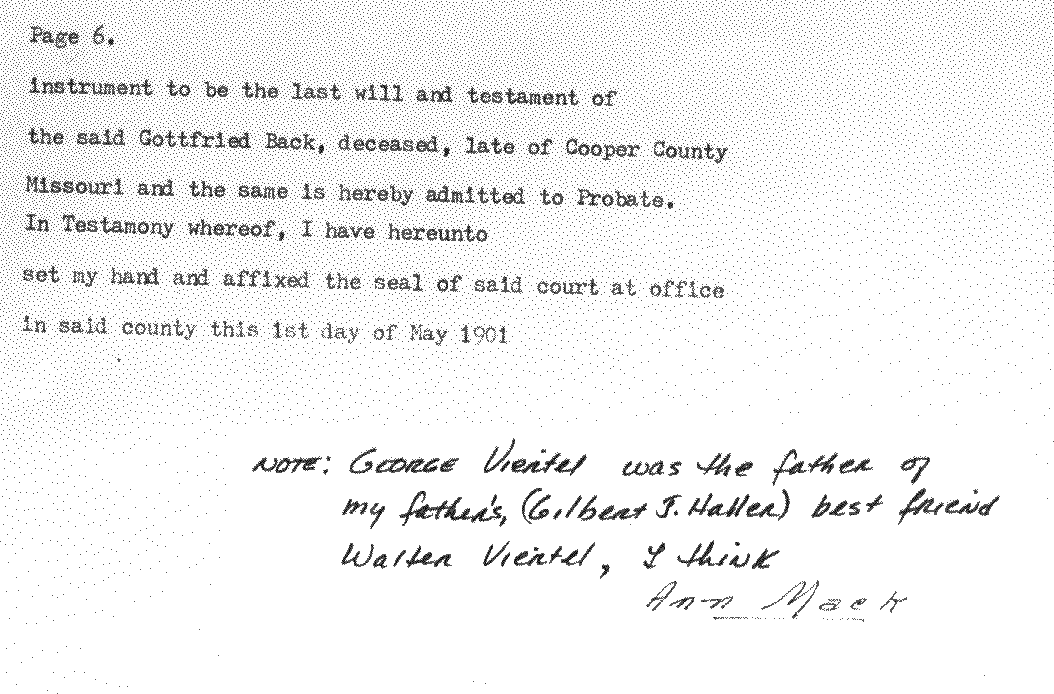 Page 6.
instrument to be the last will and testament of
the said Gottfried Back, deceased, late of Cooper County
Missouri and the same is hereby admitted to Probate.
In Testamony whereof, I have hereunto
set my hand and affixed the seal of said court at office
in said county this 1st day of May 1901
NOTE: GEORGE Viertel was the father of
my father's, (Gilbert J. Haller) best friend
Walter Viertel, I think
Ann Mack